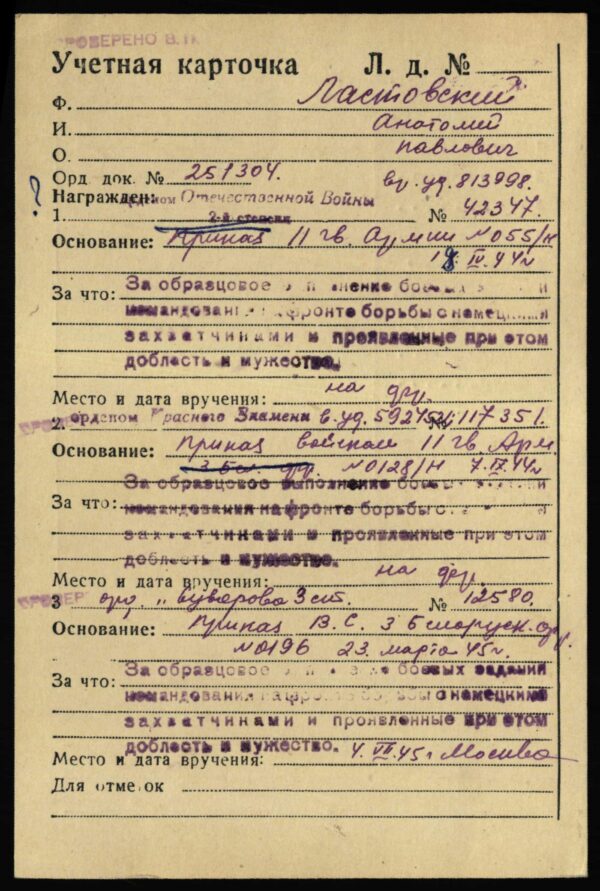 ПРОВЕРЕНО В.П
Учетная карточка Л. д. №
Ф. Ластовский
И. Анатолий
О. павлович
Орд. док. № 251304. вр. уд. 813998.
? Награжден: орденом Отечественной Войны
1. 2-й степени № 42347.
Основание: Приказ 11 гв. Армии № 055/н
IV. 44г
За что: За образцовое выполнение боевых заданий
командования на фронте борьбы с немецкими
захватчиками и проявленные при этом
доблесть и мужество.
Место и дата вручения: на фр.
2. орденом Красного Знамени в. уд. № 117351.
Основание: Приказ войскам 11 гв. Арм
№ 0128/н 7. IX. 44г
За что: За образцовое выполнение боевых заданий
командования на фронте борьбы с
захватчиками и проявленные при этом
доблесть и мужество.
Место и дата вручения: на фр.
3 орд. „Суворова 3 ст. № 12580.
Основание: Приказ В. С. 3 Белорусск. фр.
№ 0196 23 марта 45г.
За что: За образцовое боевых заданий
командования на фронте борьбы с немецкими
захватчиками и проявленные при этом
доблесть и мужество.
Место и дата вручения: 4. VII. 45г Москва
Для отметок